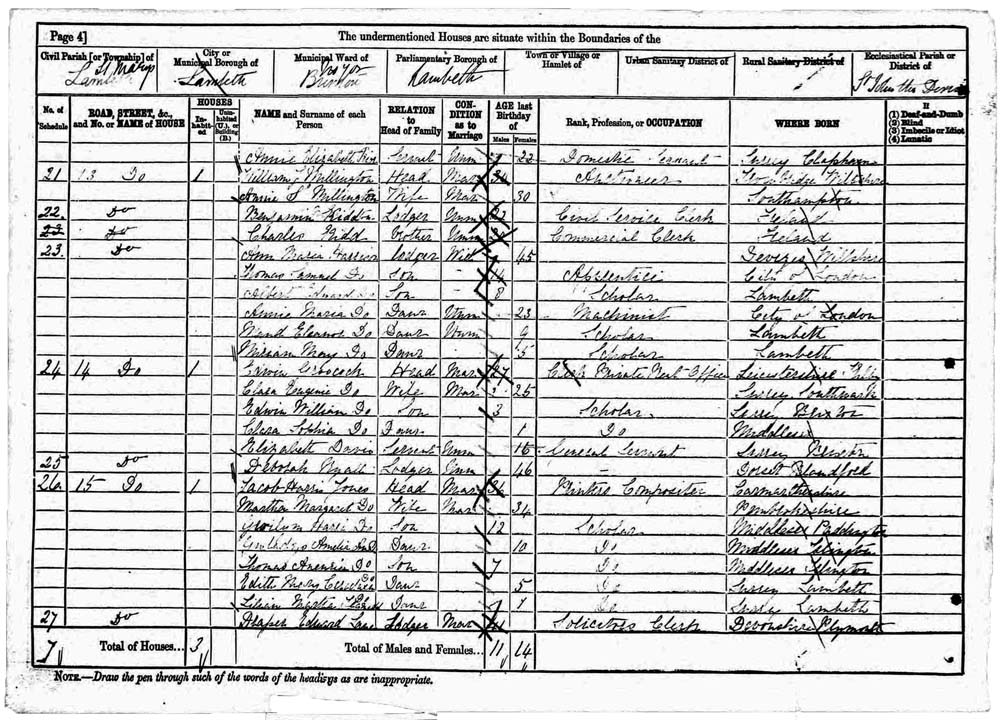 Page 4] The undermentioned Houses are situate within the Boundaries of the
Civil Parish [or Township] of City or Municipal Borough of Municipal Ward of Parliamentary Borough of Town or Village or Hamlet of Urban Sanitary District of Rural Sanitary District of Ecclesiastical Parish or District of
St Mary Lambeth Lambeth Brixton Lambeth St John the
No. of Schedule ROAD, STREET, &c., and No. or NAME of HOUSE HOUSES Inhabited Uninhabited (U.), or Building (B.) NAME and Surname of each Person RELATION to Head of Family CONDITION as to Marriage AGE last Birthday of Males Females Rank, Profession, or OCCUPATION WHERE BORN If (1) Deaf-and-Dumb (2) Blind (3) Imbecile or Idiot (4) Lunatic
Annie Elizabeth Servant Unm 22 Domestic Servant Surrey Clapham
21 13 Do 1 William Millington Head Mar 34 Wiltshire
Annie S Millington Wife Mar 30 Southampton
22 Do Benjamin Kidd Lodger Unm 22 Civil Service Clerk Ireland
23 Do Charles Kidd Brother Unm Commercial Clerk Ireland
23 Do Ann Maria Harrison Lodger Wid 45 Devizes Wiltshire
Thomas Samuel Do Son - 14 Apprentice City of London
Albert Edward Do Son - 8 Scholar Lambeth
Annie Maria Do Daur Unm 23 Machinist City of London
Maud Eleanor Do Daur Unm 9 Scholar Lambeth
Miriam Mary Do Daur 5 Scholar Lambeth
24 14 Do 1 Edwin Head Mar 27 Clerk Private Office Leicestershire
Clara Eugenie Do Wife Mar 25 Surrey Southwark
Edwin William Do Son 3 Scholar Surrey Brixton
Clara Sophia Do Daur 1 Do Middlesex
Elizabeth Davis Servant Unm 16 General Servant Surrey Brixton
25 Do Deborah Lodger Unm 46 - Dorset Blandford
26 15 Do 1 Jacob Harris Jones Head Mar 36 Printers Compositor Carmarthenshire
Martha Margaret Do Wife Mar 34 Pembrokeshire
Gwilym Harri Do Son 12 Scholar Middlesex Paddington
Amelia Do Daur 10 Do Middlesex Islington
Thomas Aneurin Do Son 7 Do Middlesex Islington
Edith Mary Do Daur 5 Do Surrey Lambeth
Lilian Martha Daur 1 Do Surrey Lambeth
27 Do Draper Edward Lane Lodger Mar Solicitors Clerk Devonshire Plymouth
7 Total of Houses... 3 Total of Males and Females... 11 14
NOTE.—Draw the pen through such of the words of the headings as are inappropriate.